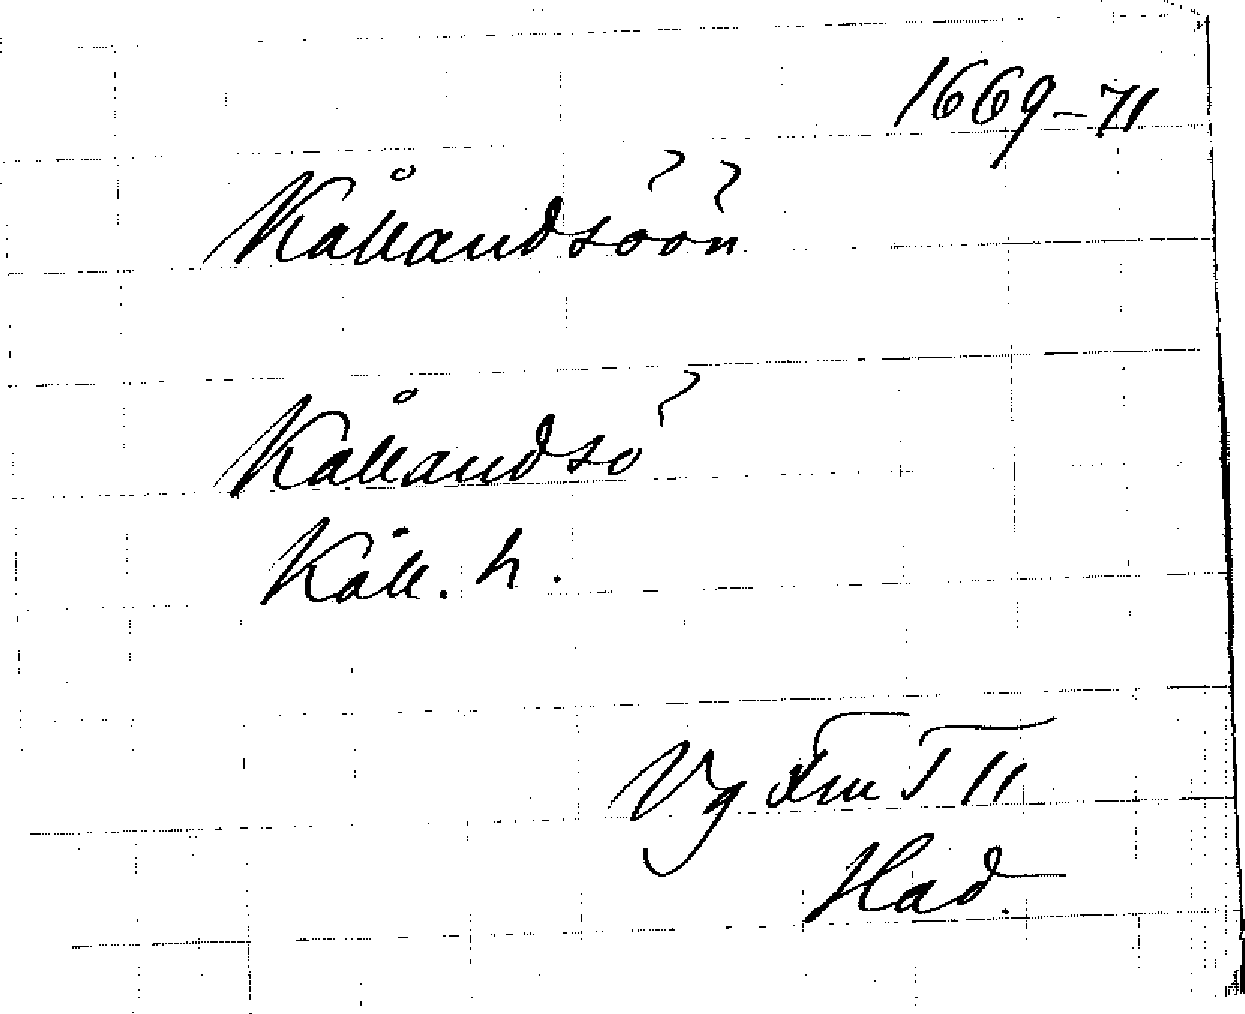 1669-71
Kållandsöön
Kållandsö
Kåll. h.
Vg Fru T 11
Had.